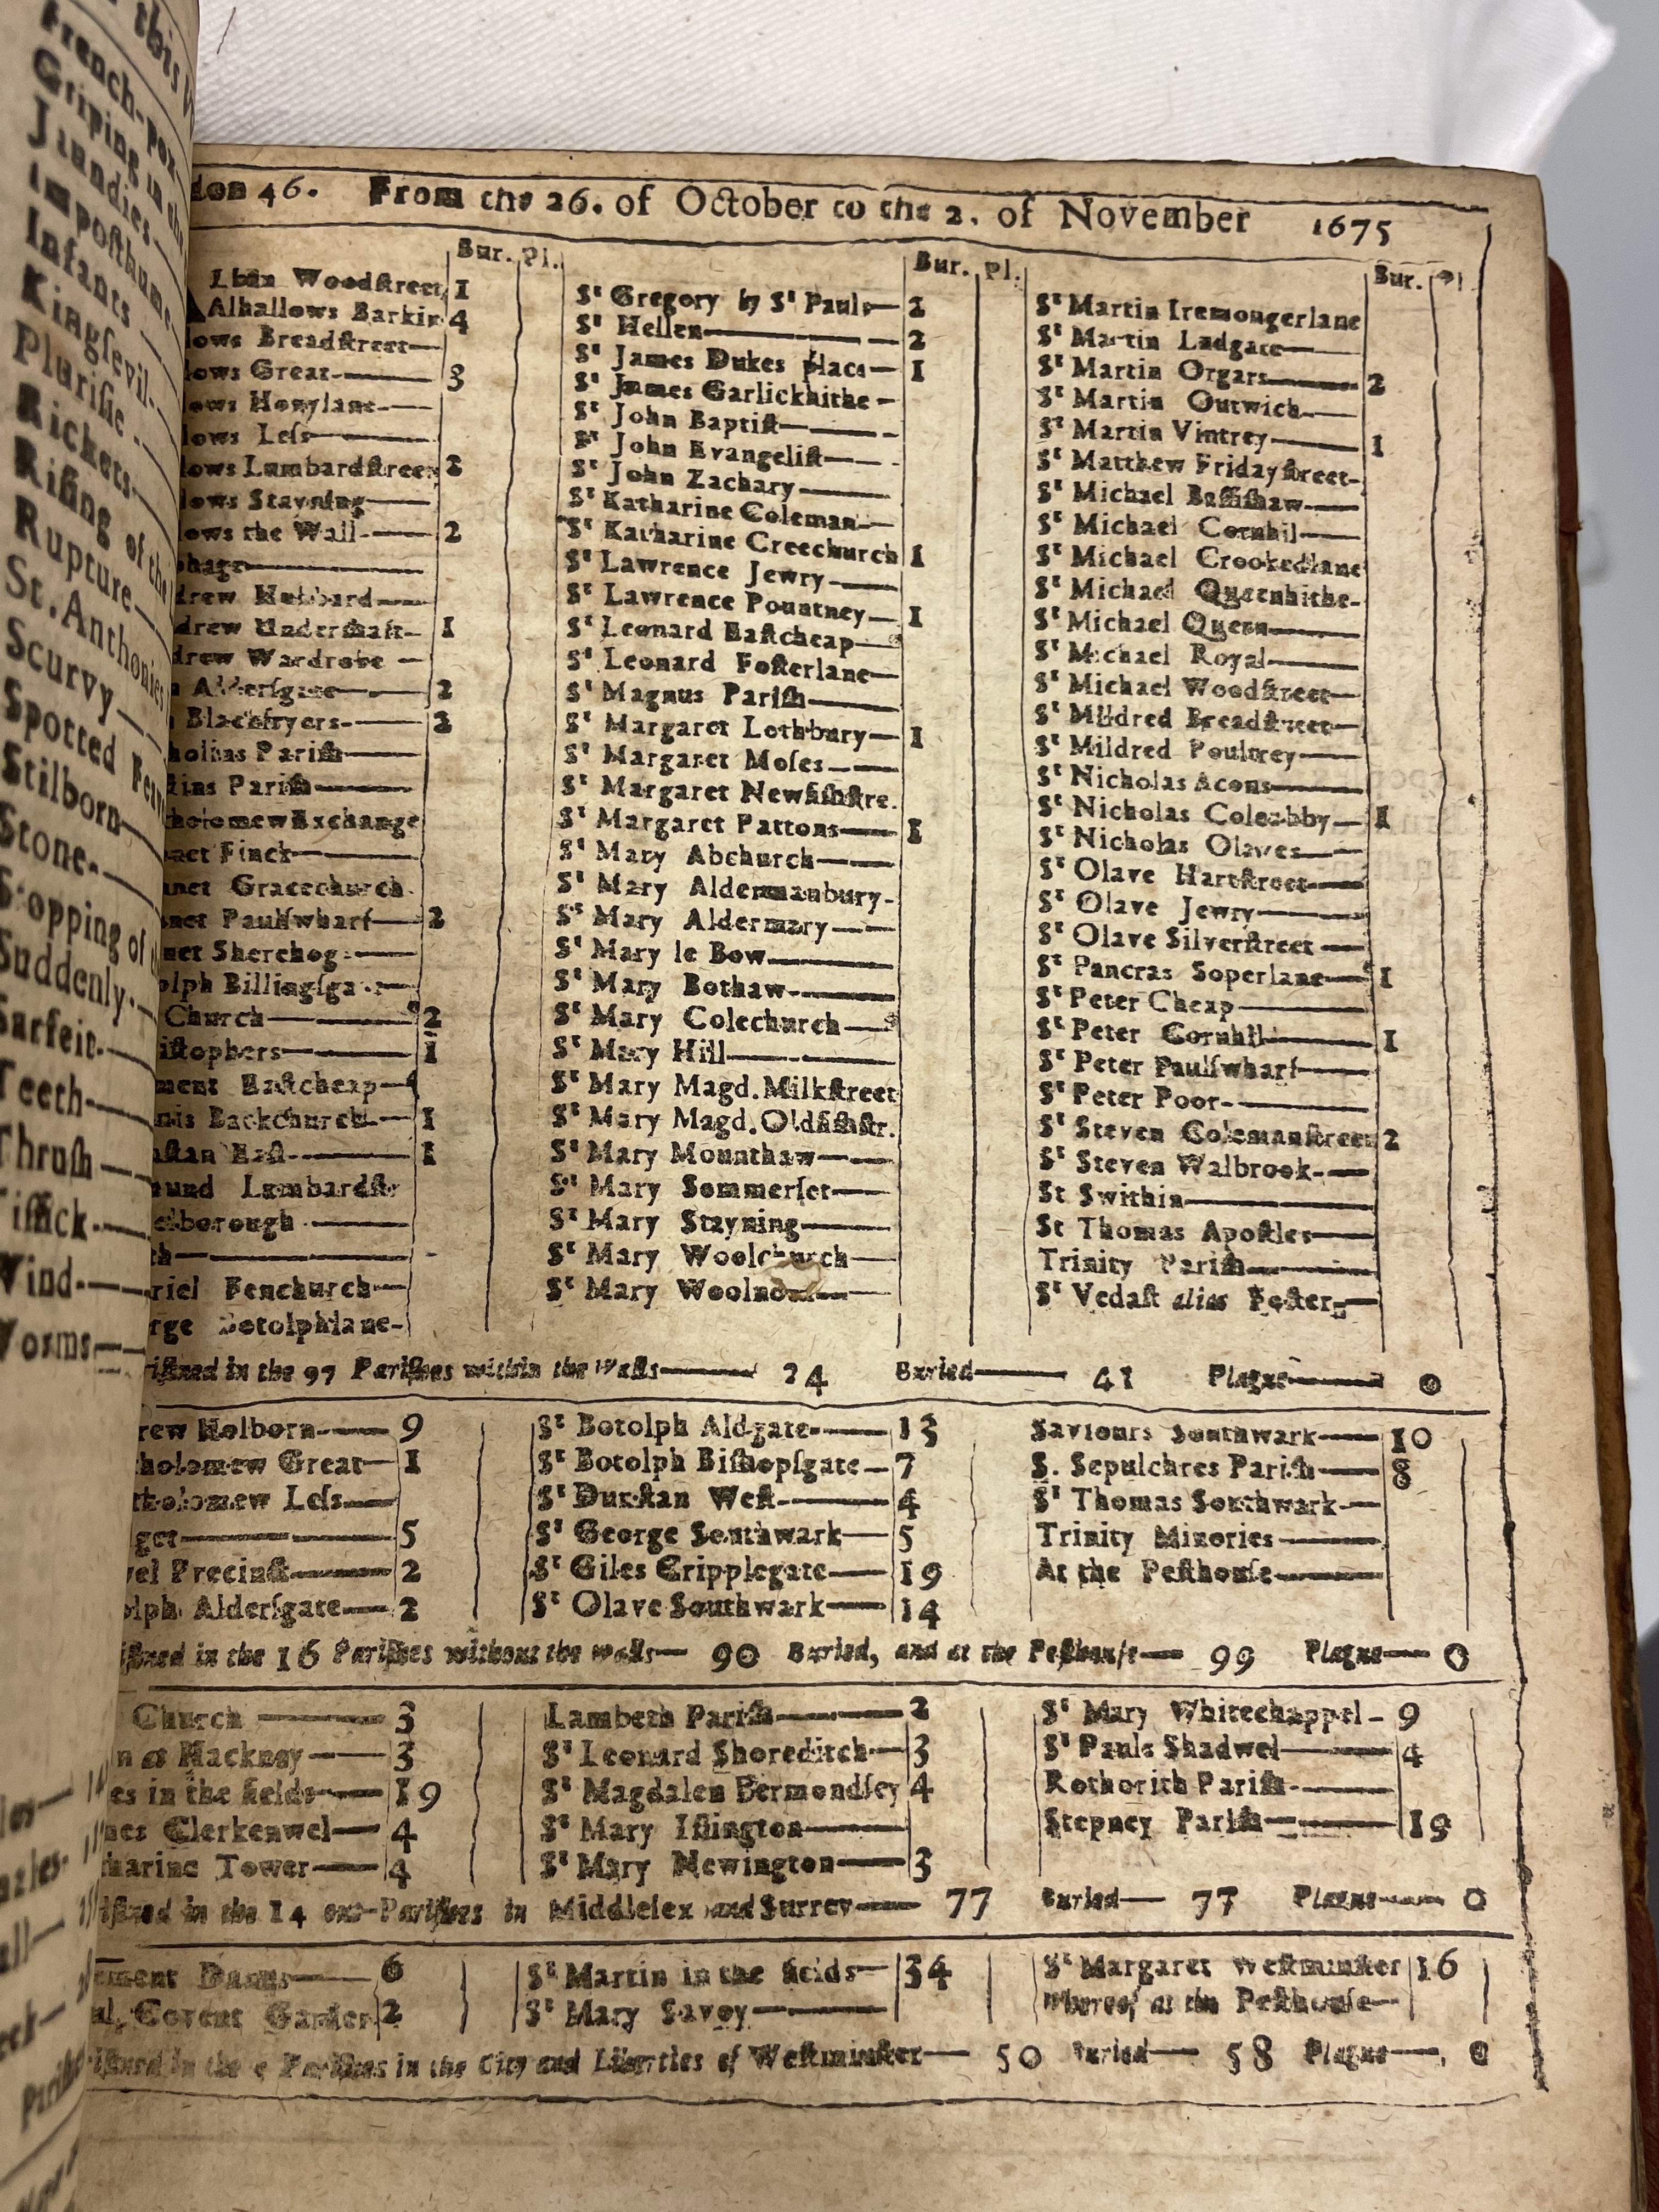 this
French-pox
Griping in the
Jaundies
Imposthume
Infants
Kingsevil
Plurisie
Rickets
Rising of the
Rupture
St. Anthonies
Scurvy
Spotted Feve
Stilborn
Stone
Stopping of
Suddenly
Surfeit
Teeth
Thrush
Tissick
Wind
Worms
don 46. From the 26. of October to the 2. of November 1675
Bur. Pl.
lban Woodstreet 1
Alhallows Barkin 4
lows Breadstreet
lows Great 3
lows Honylane
lows Less
lows Lumbardstreet 2
lows Stayning
lows the Wall 2
phage
drew Hubbard
drew Undershaft 1
drew Wardrobe
Aldersgate 2
Blackfryers 2
holias Parish
stins Parish
tholomew Exchange
net Finck
net Gracechurch
net Paulswharf 2
net Sherehog
olph Billingsgate
Church 2
istophers 1
ment Eastcheap
nis Backchurch 1
nstan East 1
mund Lambardstr
elborough
th
riel Fenchurch
rge Botolphlane
Bur. Pl.
St Gregory by St Pauls 2
St Hellen 2
St James Dukes place 1
St James Garlickhithe
St John Baptist
St John Evangelist
St John Zachary
St Katharine Coleman
St Katharine Creechurch 1
St Lawrence Jewry
St Lawrence Pountney 1
St Leonard Eastcheap
St Leonard Fosterlane
St Magnus Parish
St Margaret Lothbury 1
St Margaret Moses
St Margaret Newfishstre.
St Margaret Pattons 1
St Mary Abchurch
St Mary Aldermanbury
St Mary Aldermary
St Mary le Bow
St Mary Bothaw
St Mary Colechurch
St Mary Hill
St Mary Magd. Milkstreet
St Mary Magd. Oldfishstr.
St Mary Mounthaw
St Mary Sommerset
St Mary Stayning
St Mary Woolchurch
St Mary Woolnoth
Bur. Pl
St Martin Iremongerlane
St Martin Ludgate
St Martin Orgars 2
St Martin Outwich
St Martin Vintrey 1
St Matthew Fridaystreet
St Michael Bassishaw
St Michael Cornhil
St Michael Crookedlane
St Michael Queenhithe
St Michael Quern
St Michael Royal
St Michael Woodstreet
St Mildred Breadstreet
St Mildred Poultrey
St Nicholas Acons
St Nicholas Coleabby 1
St Nicholas Olaves
St Olave Hartstreet
St Olave Jewry
St Olave Silverstreet
St Pancras Soperlane 1
St Peter Cheap
St Peter Cornhil 1
St Peter Paulswharf
St Peter Poor
St Steven Colemanstreet 2
St Steven Walbrook
St Swithin
St Thomas Apostles
Trinity Parish
St Vedast alias Foster
ristned in the 97 Parishes within the Walls 24 Buried 41 Plague 0
rew Holborn 9
tholomew Great 1
tholomew Less
get 5
wel Precinct 2
olph Aldersgate 2
St Botolph Aldgate 13
St Botolph Bishopsgate 7
St Dunstan West 4
St George Southwark 5
St Giles Cripplegate 19
St Olave Southwark 14
Saviours Southwark 10
S. Sepulchres Parish 8
St Thomas Southwark
Trinity Minories
At the Pesthouse
istned in the 16 Parishes without the walls 90 Buried, and at the Pesthouse 99 Plague 0
Church 3
n at Hackney 3
es in the fields 19
mes Clerkenwel 4
tharine Tower 4
Lambeth Parish 2
St Leonard Shoreditch 3
St Magdalen Bermondsey 4
St Mary Islington
St Mary Newington 3
St Mary Whitechappel 9
St Pauls Shadwel 4
Rothorith Parish
Stepney Parish 19
istned in the 14 out-Parishes in Middlesex and Surrey 77 Buried 77 Plague 0
ement Danes 6
ul, Covent Garden 2
St Martin in the fields 34
St Mary Savoy
St Margaret Westminster 16
Whereof at the Pesthouse
istned in the 5 Parishes in the City and Liberties of Westminster 50 Buried 58 Plague 0